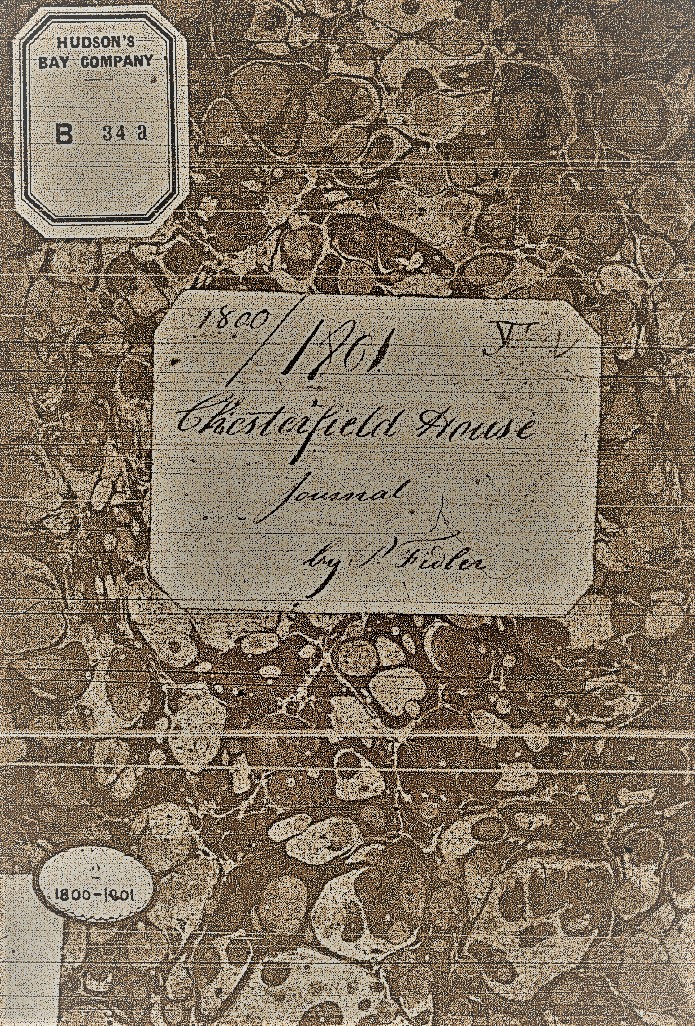 HUDSON'S
BAY COMPANY
B 34 a
1800/1801
Chesterfield House
Journal
by P Fidler
2
1800-1801